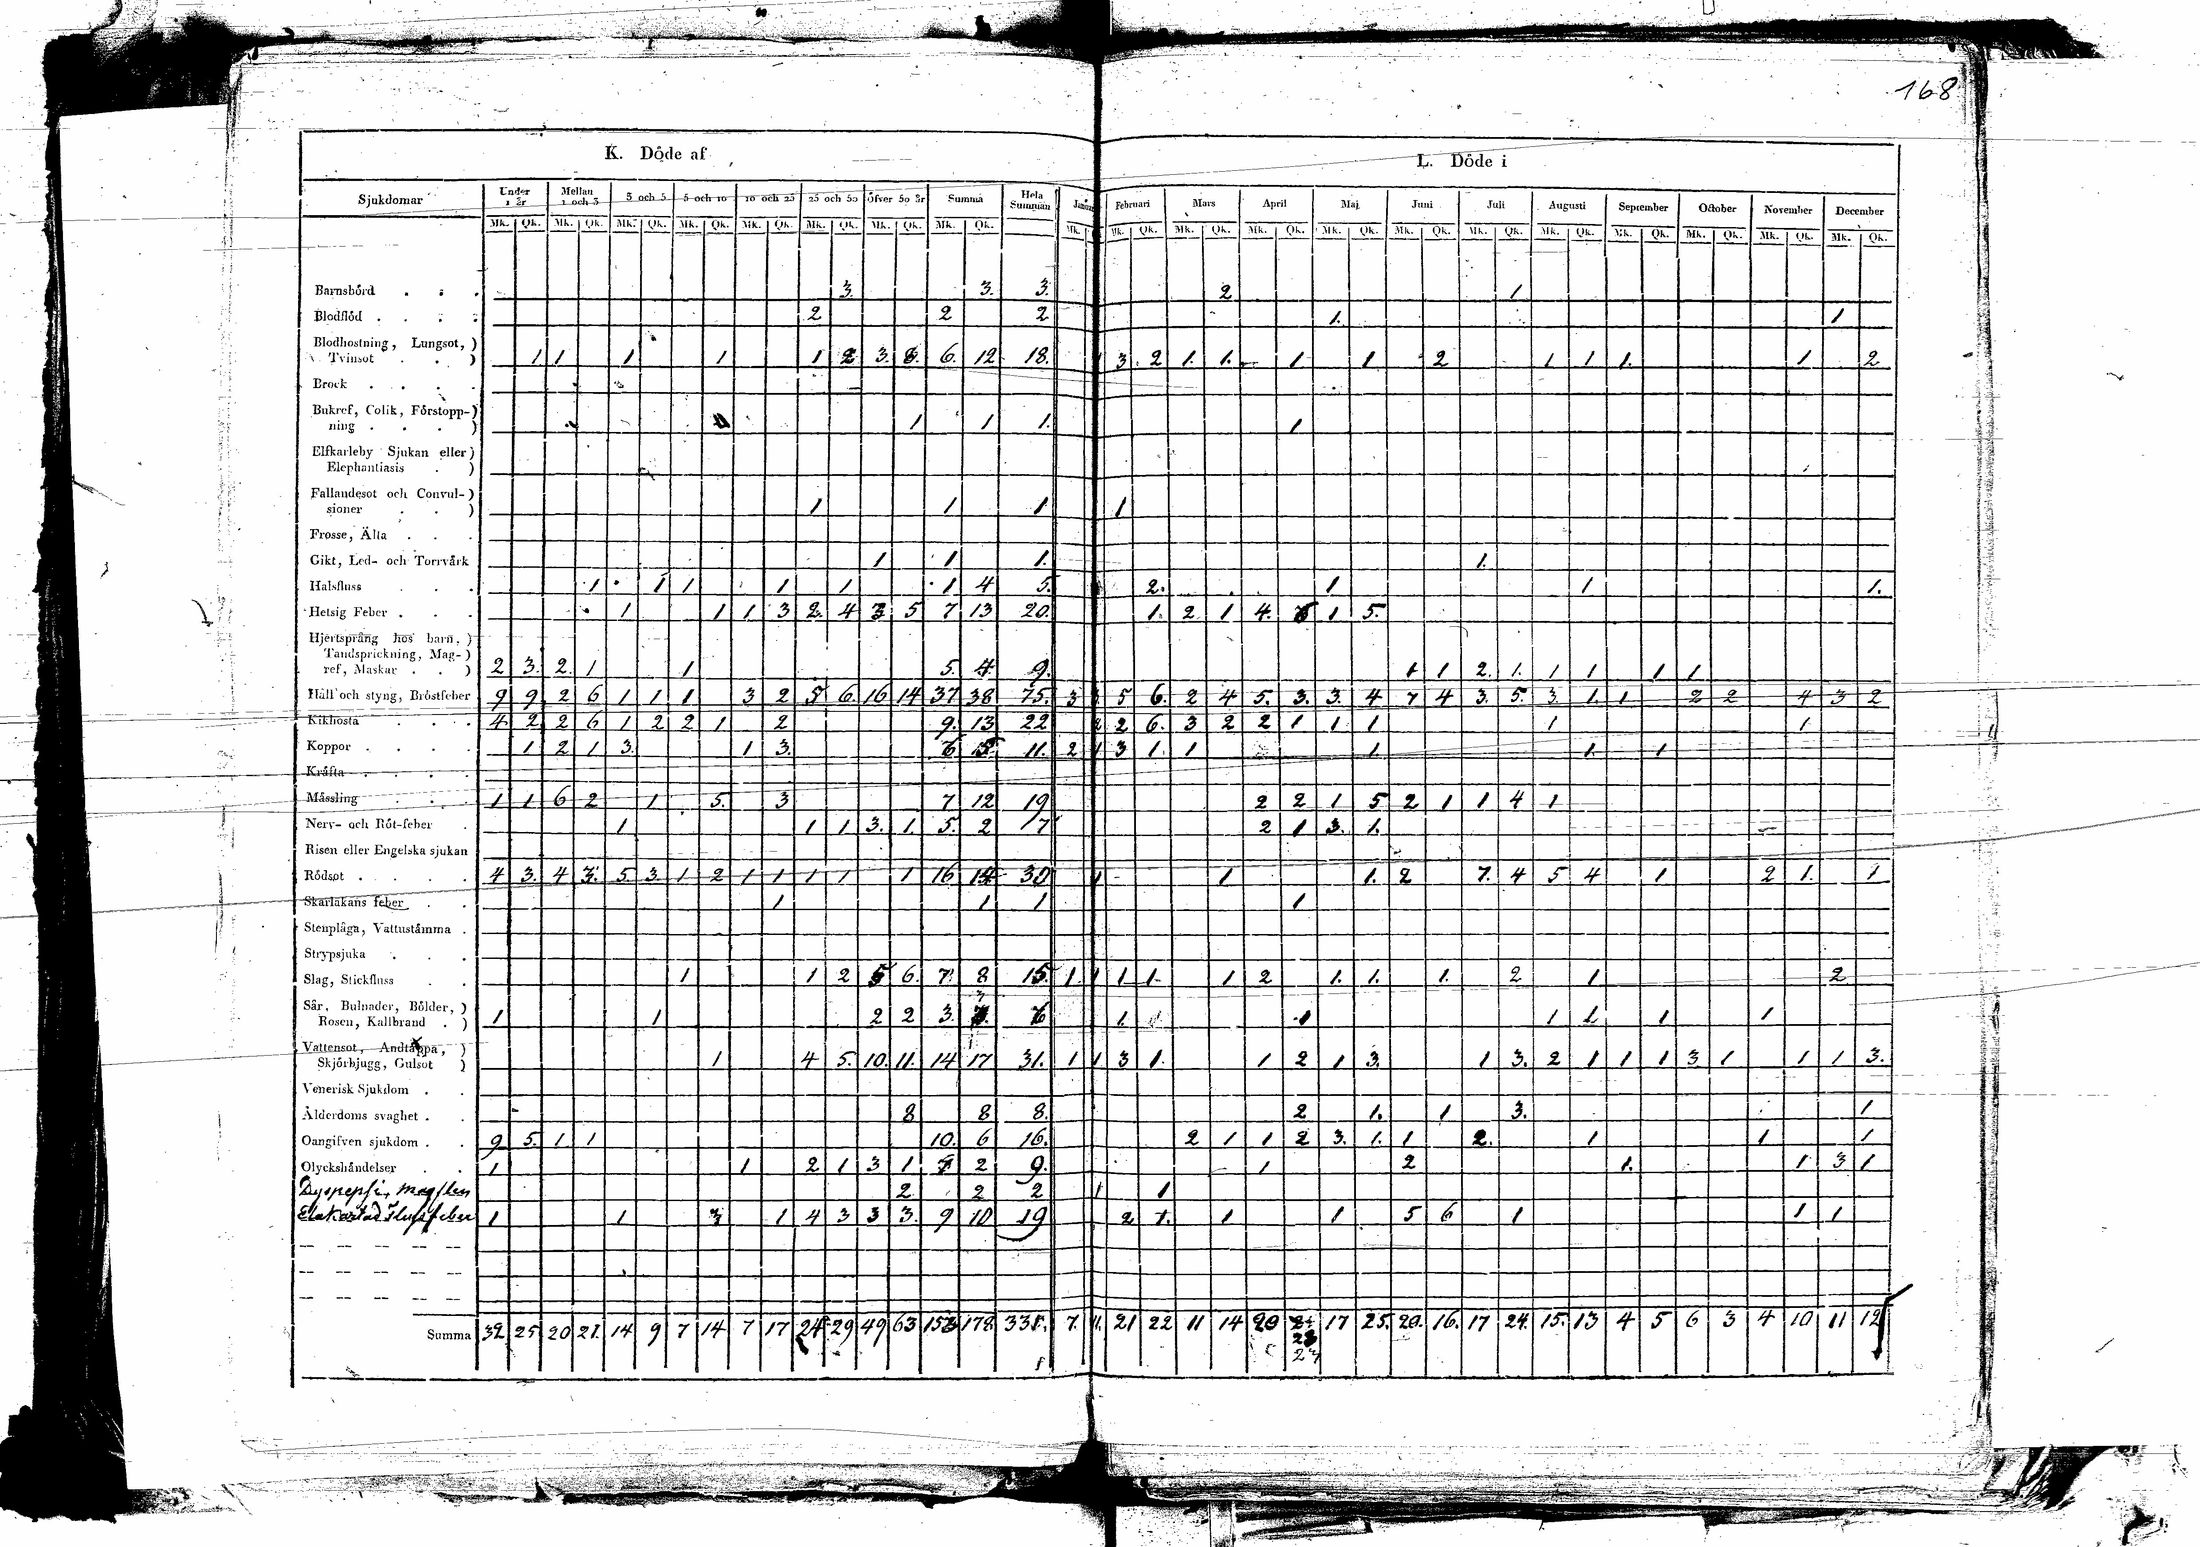 168
K. Döde af
L. Döde i
Sjukdomar Under 1 år Mellan 1 och 3 3 och 5 5 och 10 10 och 25 25 och 50 Öfver 50 år Summa Hela Summan Februari Mars April Maj Juni Juli Augusti September October November December
Mk. Qk. Mk. Qk. Mk. Qk. Mk. Qk. Mk. Qk. Mk. Qk. Mk. Qk. Mk. Qk. Mk. Mk. Qk. Mk. Qk. Mk. Qk. Mk. Qk. Mk. Qk. Mk. Qk. Mk. Qk. Mk. Qk. Mk. Qk. Mk. Qk. Mk. Qk.
Barnsbörd . . . 3. 3. 3. 2 1
Blodflöd . . . . 2 2 2 1. 1
Blodhostning, Lungsot, )
Tvinsot . . ) 1 1 1 1 1 2 3. 8. 6. 12 18. 1 3 2 1. 1. 1. 1 2 1 1 1. 1 2
Brock . . . .
Bukref, Colik, Förstopp-)
ning . . . ) 1 1 1. 1
Elfkarleby Sjukan eller )
Elephantiasis . )
Fallandesot och Convul- )
sioner . . ) 1 1 1 1
Frosse, Älta . . .
Gikt, Led- och Torrvärk 1 1 1. 1.
Halsfluss . . . 1 1 1 1 1 1 4 5. 2. 1 1 1.
Hetsig Feber . . . 1 1 1 3 2. 4 3 5 7 13 20. 1. 2 1 4. 6 1 5.
Hjertsprång hos barn, )
Tandsprickning, Mag- )
ref, Maskar . . ) 2 3. 2. 1 1 5. 4. 9. 1 1 2. 1. 1 1 1 1
Håll och styng, Bröstfeber 9 9 2 6 1 1 1 3 2 5 6 16 14 37 38 75. 3 3 5 6. 2 4 5. 3. 3. 4 7 4 3. 5. 3. 1. 1 2 2 4 3 2
Kikhosta . . . 4 2 2 6 1 2 2 1 2 9. 13 22 2 2 6. 3 2 2 1 1 1 1 1.
Koppor . . . . 1 2 1 3. 1 3. 6 5 11. 2 1 3 1. 1 1. 1. 1
Kräfta . . . .
Mässling . . . 1 1 6 2 1 5. 3 7 12 19 2 2 1 5 2 1 1 4 1
Nerv- och Röt-feber . 1 1 1 3. 1. 5. 2 7 2 1 3. 1.
Risen eller Engelska sjukan
Rödsot . . . . 4 3. 4 3. 5. 3. 1 2 1 1 1 1 1 16 14 30 1 1 1. 2 7. 4 5 4 1 2 1. 1
Skarlakans feber . . 1 1 1 1
Stenplåga, Vattustämma .
Strypsjuka . . .
Slag, Stickfluss . . 1 1 2 5 6. 7. 8 15. 1. 1 1 1. 1 2 1. 1. 1. 2 1 2
Sår, Bulnader, Bölder, )
Rosen, Kallbrand . ) 1 1 2 2 3. 3 6 1. 1 1 1. 1 1
Vattensot, Andtäppa, )
Skjörbjugg, Gulsot ) 1 4 5. 10. 11. 14 17 31. 1 1 3 1. 1 2 1 3. 1 3. 2 1 1 1 3. 1 1 1 3.
Venerisk Sjukdom . .
Ålderdoms svaghet . . 8 8 8. 2 1. 1 3. 1
Oangifven sjukdom . . 9 5. 1 1 10. 6 16. 2 1 1 2 3. 1. 1 2. 1 1 1
Olyckshändelser . . 1 1 2 1 3 1 7 2 9. 1 2 1. 1 3 1
Dyspepsi, 2 2 2 1 1
Elakartad Flussfeber 1 1 3 1 4 3 3 3. 9 10 19 2 1. 1 1 5 6 1 1 1
Summa 32. 25 20 21. 14 9 7 14 7 17 24 29 49 63 153 178. 331. 7. 11. 21 22 11 14 20 24 17 25. 20. 16. 17 24. 15. 13 4 5 6 3 4 10 11 12
23